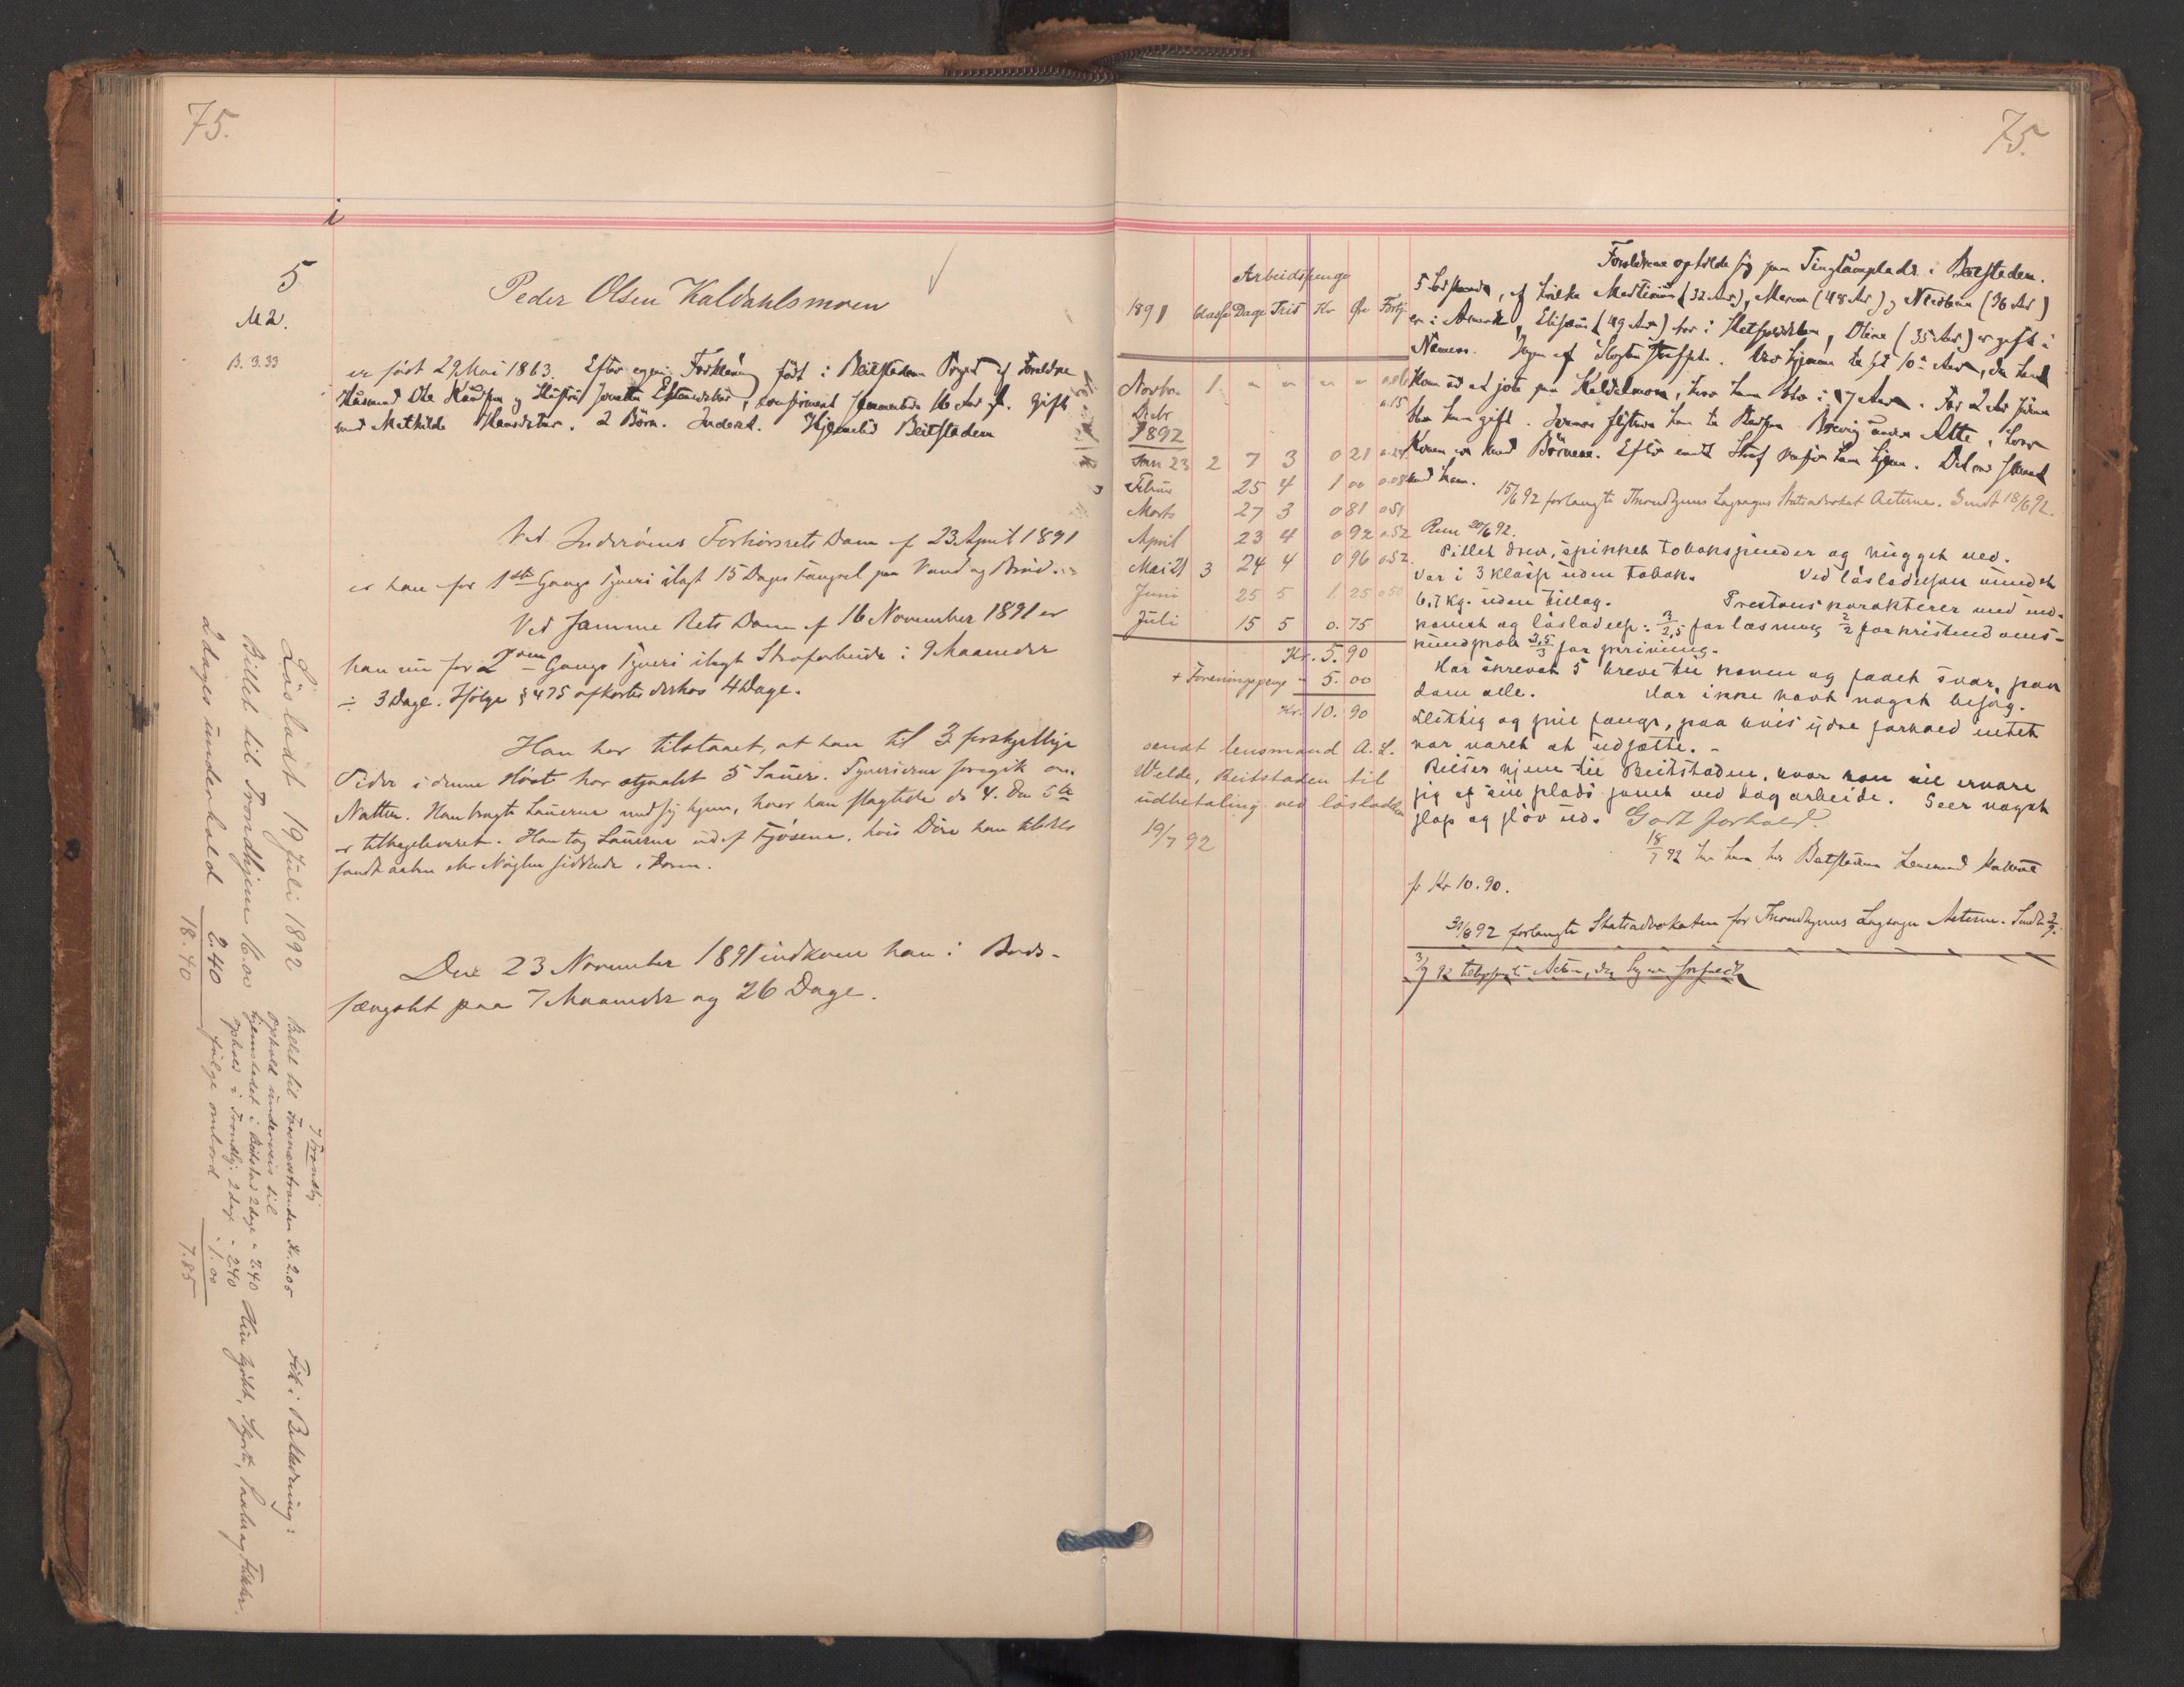 75.
i
5
M 2.
B. 3.33
Peder Olsen Kaldahlsmoen
er født 29 Mai 1863. Efter egen Forklaring født i Beitstaden Prgd af Forældre
Husmand Ole Hansen og Hustru Jonetta, confirmeret 16 Aar gl. Gift
med Mathilde Hansdatter. 2 Børn. Inderst. Hjemsted Beitstaden
Ved Inderøens Forhørsrets Dom af 23 April 1891
er han for 1ste Gangs Tyveri ilagt 15 Dages Fængsel paa Vand og Brød.
Ved samme Rets Dom af 16 November 1891 er
han nu for 2den Gangs Tyveri ilagt Strafarbeide i 9 Maaneder
÷ 3 Dage. Ifølge § 475 afkortes derhos 4 Dage.
Han har tilstaaet, at han til 3 forskjellige
Tider i denne Høst har stjaalet 5 Sauer. Tyverierne foregik om
Natten. Han bragte Sauerne med sig hjem, hvor han slagtede de 4. Den 5te
er tilbageleveret. Han tog Sauerne ud af Fjøsene, hvis Døre han tildels
fandt aaben eller Nøglen siddende i Døren.
Den 23 November 1891 indkom han i Bods-
fængslet paa 7 Maaneder og 26 Dage.
Løsladt 19 Juli 1892
Billet til Trondhjem 16.00
2 dages underhold 2.40
18.40
I Trondhj
Billet til Fornæsstranden Kr. 2.05
Ophold underveis til
hjemstedet i Beitstad 2 dage " 2.40
Ophold i Trondhj. 2 dage " 2.40
følge ombord " 1.00
7.85
Fik i Beklædning:
Skjorte, og
75.
Arbeidspenge
1891 Classe Dage Flid Kr Øre Fortj
Novbr. 1 " " " "
Decbr 0.15
1892
Jan 23 2 7 3 0 21
Februar 25 4 1 00 0.08
Marts 27 3 0 81 0.51
April 23 4 0 92 0.52
Mai 21 3 24 4 0 96 0.52
Juni 25 5 1. 25 0.50
Juli 15 5 0. 75
Kr. 5. 90
+ Foreningspenge " 5. 00
Kr. 10. 90
sendt lensmand A. L.
Welde, Beitstaden til
udbetaling ved løsladelsen
19/7 92
Forældrene opholde sig paa Plads i Beitstaden.
5 Sødskende, af hvilke (32 Aar), Maren (48 Aar) og (36 Aar)
er i Amerik, Elisæus (49 Aar) bor i, Oline (35 Aar) er gift i
Namsos. Ingen af Slægten straffet. Var hjemme til sit 10de Aar, da han
kom ud at gjete paa Kaldalmoen, hvor han blev i 17 Aar. For 2 Aar siden
blev han gift. flyttede han til Pladsen under, hvor
Konen er med Børnene. Efter endt Straf reiser han hjem.
med ham.
15/6 92 forlangte Throndhjems Lagsogns Statsadvokat Acterne. Sendt 18/6 92.
Kom 20/6 92.
Pillet drev, spikket tobakspinder og hugget ved.
Var i 3 klasse uden tobak. Ved løsladelsen mindst
6,7 kg. uden tillæg. Prestens karakterer ved ind-
komst og løsladelse: 3/2,5 for læsning 2/2 for kristendoms-
kundskab 3,5/3 for skrivning.
Har skrevet 5 breve til konen og faaet svar paa
dem alle. Har ikke havt noget besøg.
Flittig og snil fange, paa hvis ydre forhold intet
har været at udsætte.
Reiser hjem til Beitstaden, hvor han vil ernære
sig af sin plads samt ved dagarbeide. Seer noget
slap og sløv ud. Godt forhold.
18/7 92 Beitstadens Lensmand
f. Kr 10.90.
31/8 92 forlangte Statsadvokaten for Throndhjems Lagsogn Acterne. Sendt 2/9.
3/9 92